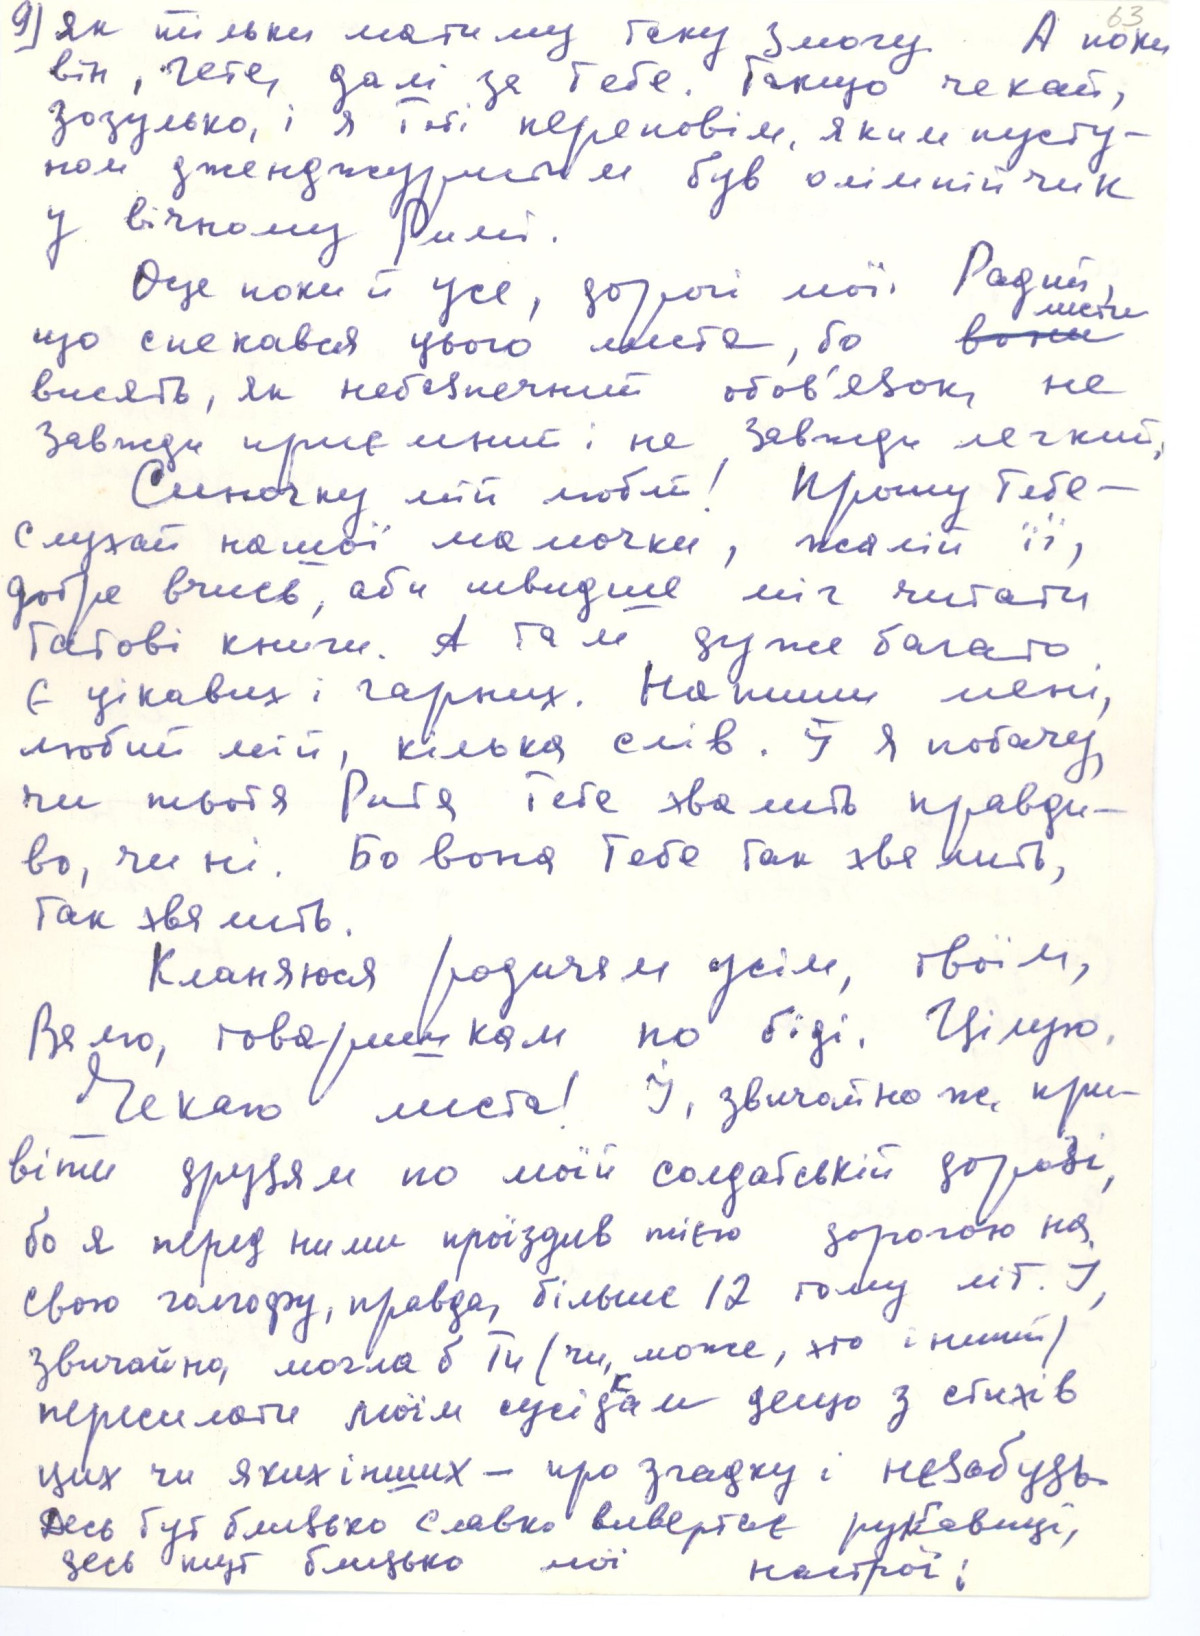 63
9) як тільки матиму таку змогу. А поки
він, Гете, далі за Тебе. Такщо чекай,
зозулько, і я Тобі переповім, яким пусту-
ном дженджуристим був олімпійчик
у вічному Римі.
Оце поки й усе, дорогі мої. Радий,
що спекався цього листа, бо вони листи
висять, як небезпечний обов'язок, не
завжди приємний і не завжди легкий.
Синочку мій любий! Прошу Тебе –
слухай нашої мамочки, жалій її,
добре вчись, аби швидше міг читати
татові книги. А там дуже багато
є цікавих і гарних. Напиши мені,
любий мій, кілька слів. Й я побачу,
чи тьотя Рита Тебе хвалить правди-
во, чи ні. Бо вона Тебе так хвалить,
так хвалить.
Кланяюся родичам усім, твоїм,
Валю, товаришкам по біді. Цілую.
Чекаю листа! Й, звичайно ж, при-
віти друзям по моїй солдатській дорозі,
бо я перед ними проїздив тією дорогою на
свою голгофу, правда, більше 12 тому літ. Й,
звичайно, могла б Ти (чи, може, хто інший)
пересилати моїм сусідкам дещо з стихів
цих чи яких інших – про згадку і незабудь.
Десь тут близько Славко вивертає рукавиці,
десь тут близько мої настрої: